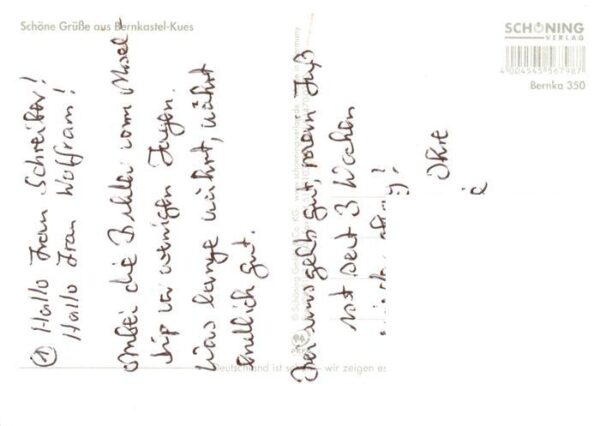 Schöne Grüße aus Bernkastel-Kues
SCHÖNING
VERLAG
4 004545 567987
Bernka 350
① Hallo Frau Schreiber!
Hallo Frau Wolfram!
Anbei die Bilder vom Mosel-
trip vor wenigen Tagen.
Was lange währt, währt
endlich gut.
Bei uns geht's gut, mein Fuß
ist seit 3 Wochen
Ihre
Deutschland ist schön – wir zeigen es